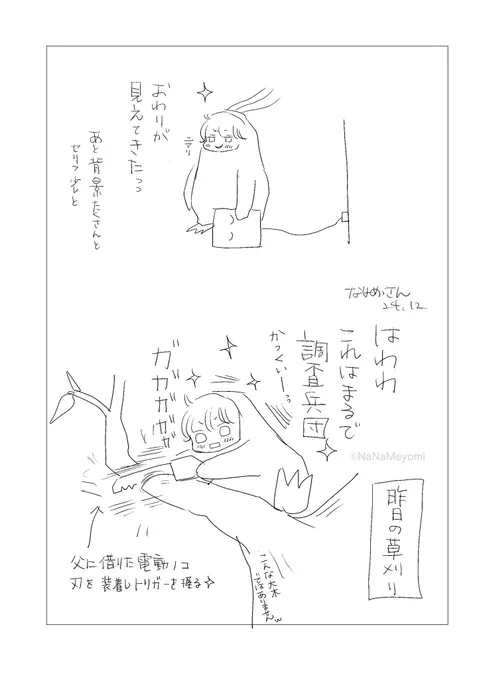 おわりが
見えてきたっっ
ニマリ
あと背景たくさんと
セリフ少しと
ななめさん
24.12
はわわ
これはまるで
調査兵団
かっくいーっ
ガガガガガ
©NaNaMeyomi
昨日の草刈り
父に借りた電動ノコ
刃を装着しトリガーを握る
こんな大木
ではありませんw